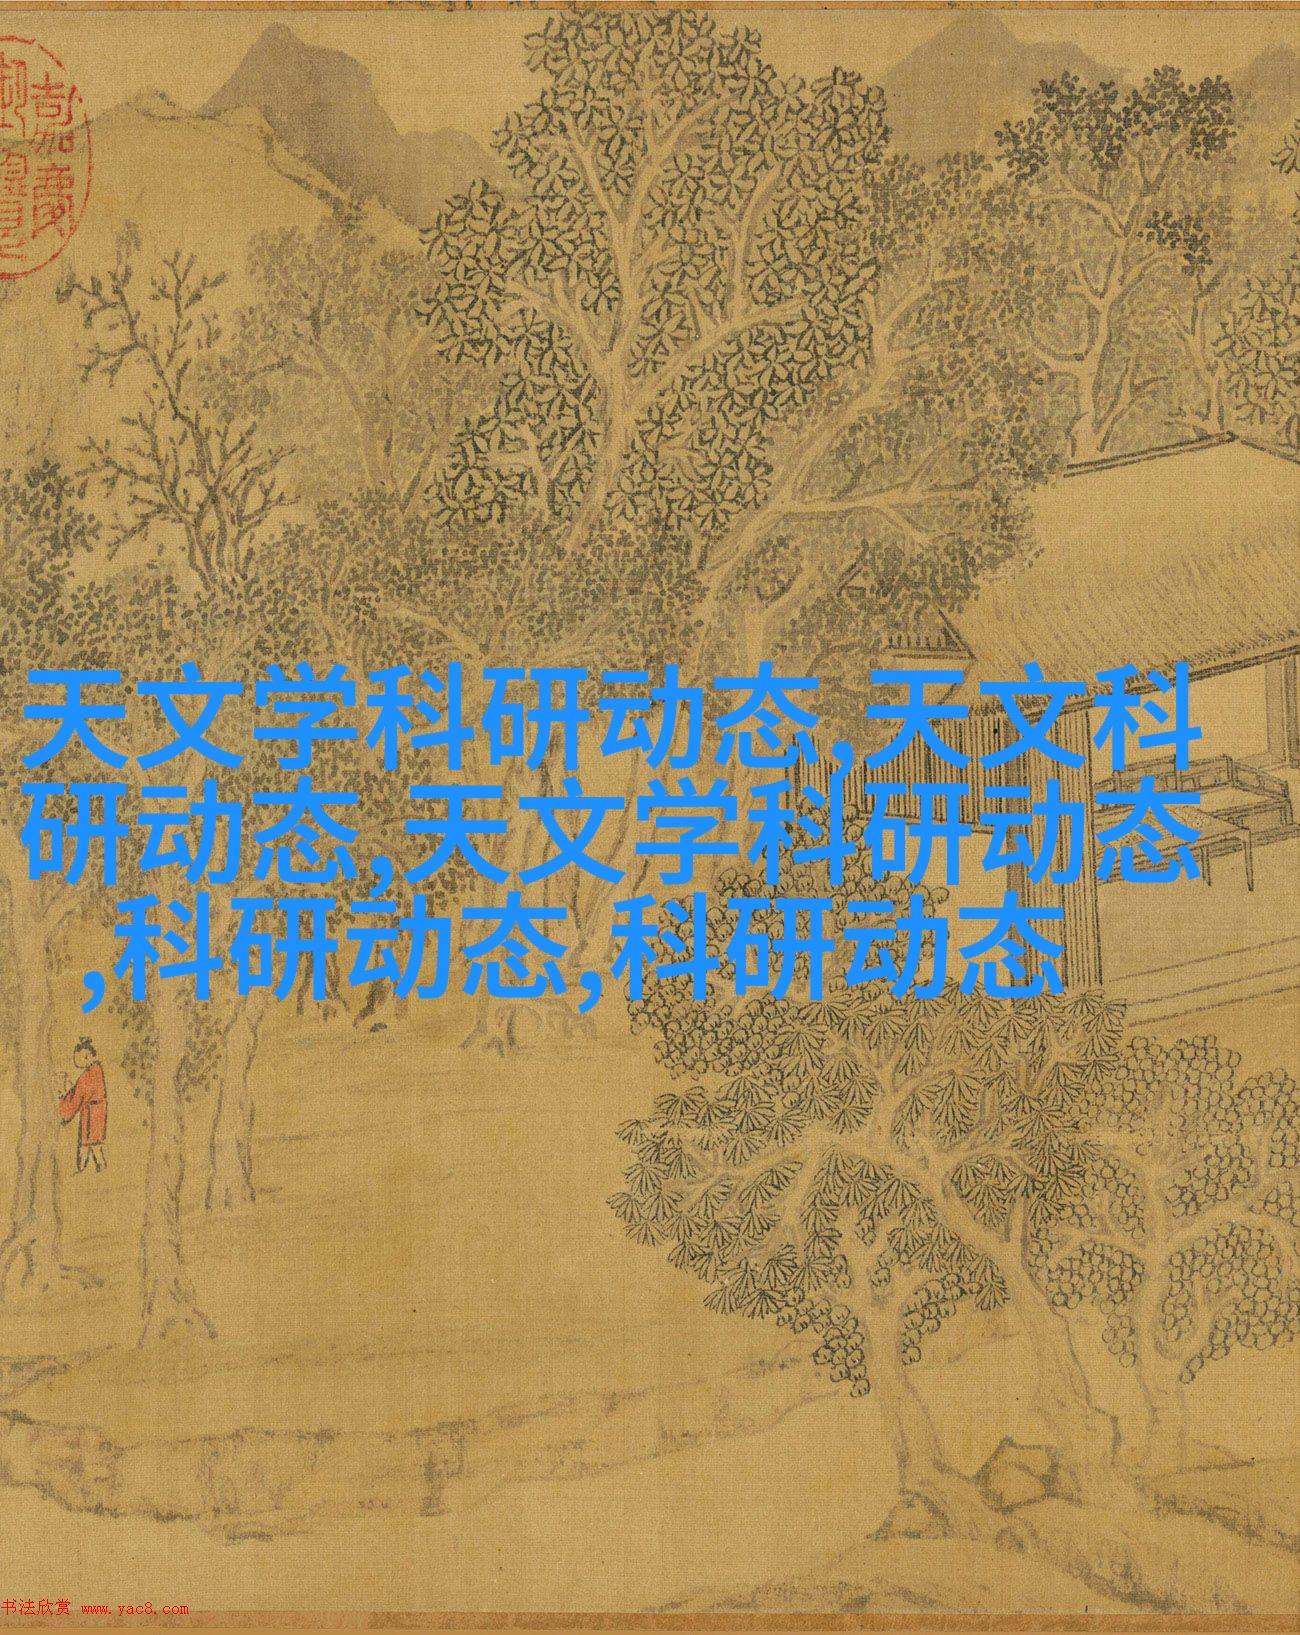 嘉慶
天文学科研动态,天文科
研动态,天文学科研动态
,科研动态,科研动态
书法欣赏 www.yac8.com